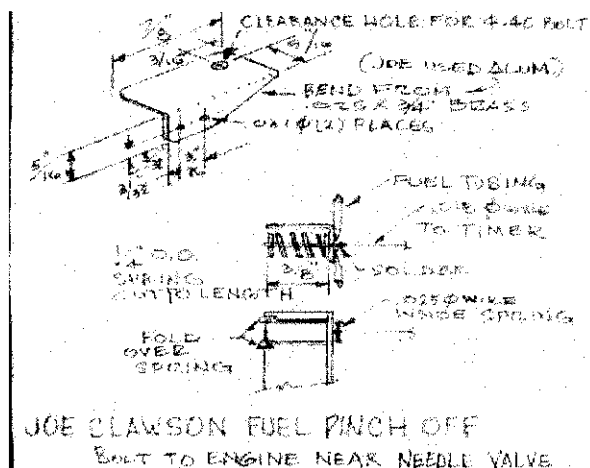 7/8"
CLEARANCE HOLE FOR 4-40 BOLT
3/16"
5/16
(JOE USED ALUM)
BEND FROM
.025 X 3/4" BRASS
(2) PLACES
5/16"
3/32
FUEL TUBING
WIRE
TO TIMER
1/4" O.D.
SPRING
CUT TO LENGTH
3/8"
SOLDER
.025 Φ WIRE
INSIDE SPRING
FOLD
OVER
SPRING
JOE CLAWSON FUEL PINCH OFF
BOLT TO ENGINE NEAR NEEDLE VALVE